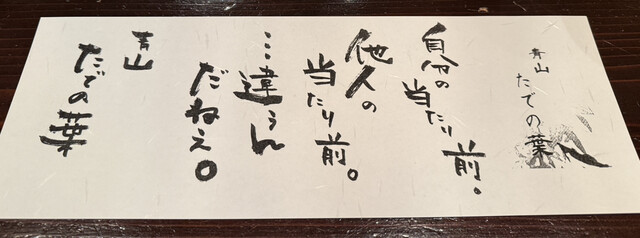 青山
たでの葉
自分の
当たり前。
他人の
当たり前。
…違うん
だねえ。
青山
たでの葉